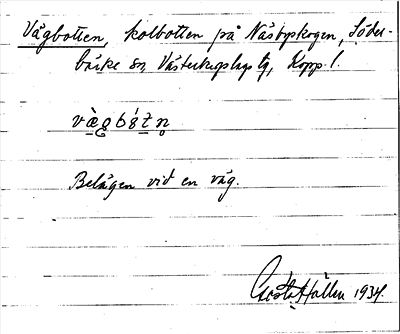 Vägbotten, kolbotten på Näsbyskogen, Söder-
bärke sn, Västerbergslags tg, Kopp. l.
væ̀gbótn̥
Belägen vid en väg.
Gösta Hallén 1934.